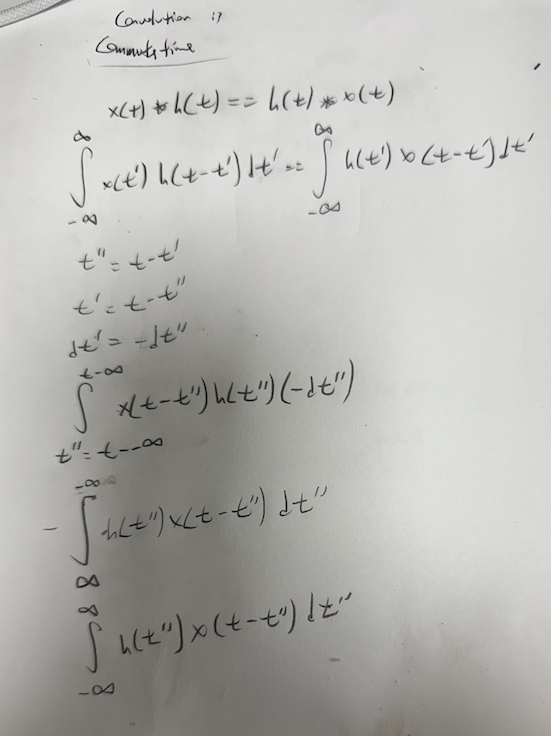 Convolution is
Commutative
x(t) * h(t) == h(t) * x(t)
∫_{-∞}^{∞} x(t') h(t-t') dt' == ∫_{-∞}^{∞} h(t') x(t-t') dt'
t'' = t-t'
t' = t-t''
dt' = -dt''
∫_{t''=t--∞}^{t-∞} x(t-t'') h(t'') (-dt'')
- ∫_{∞}^{-∞} h(t'') x(t-t'') dt''
∫_{-∞}^{∞} h(t'') x(t-t'') dt''